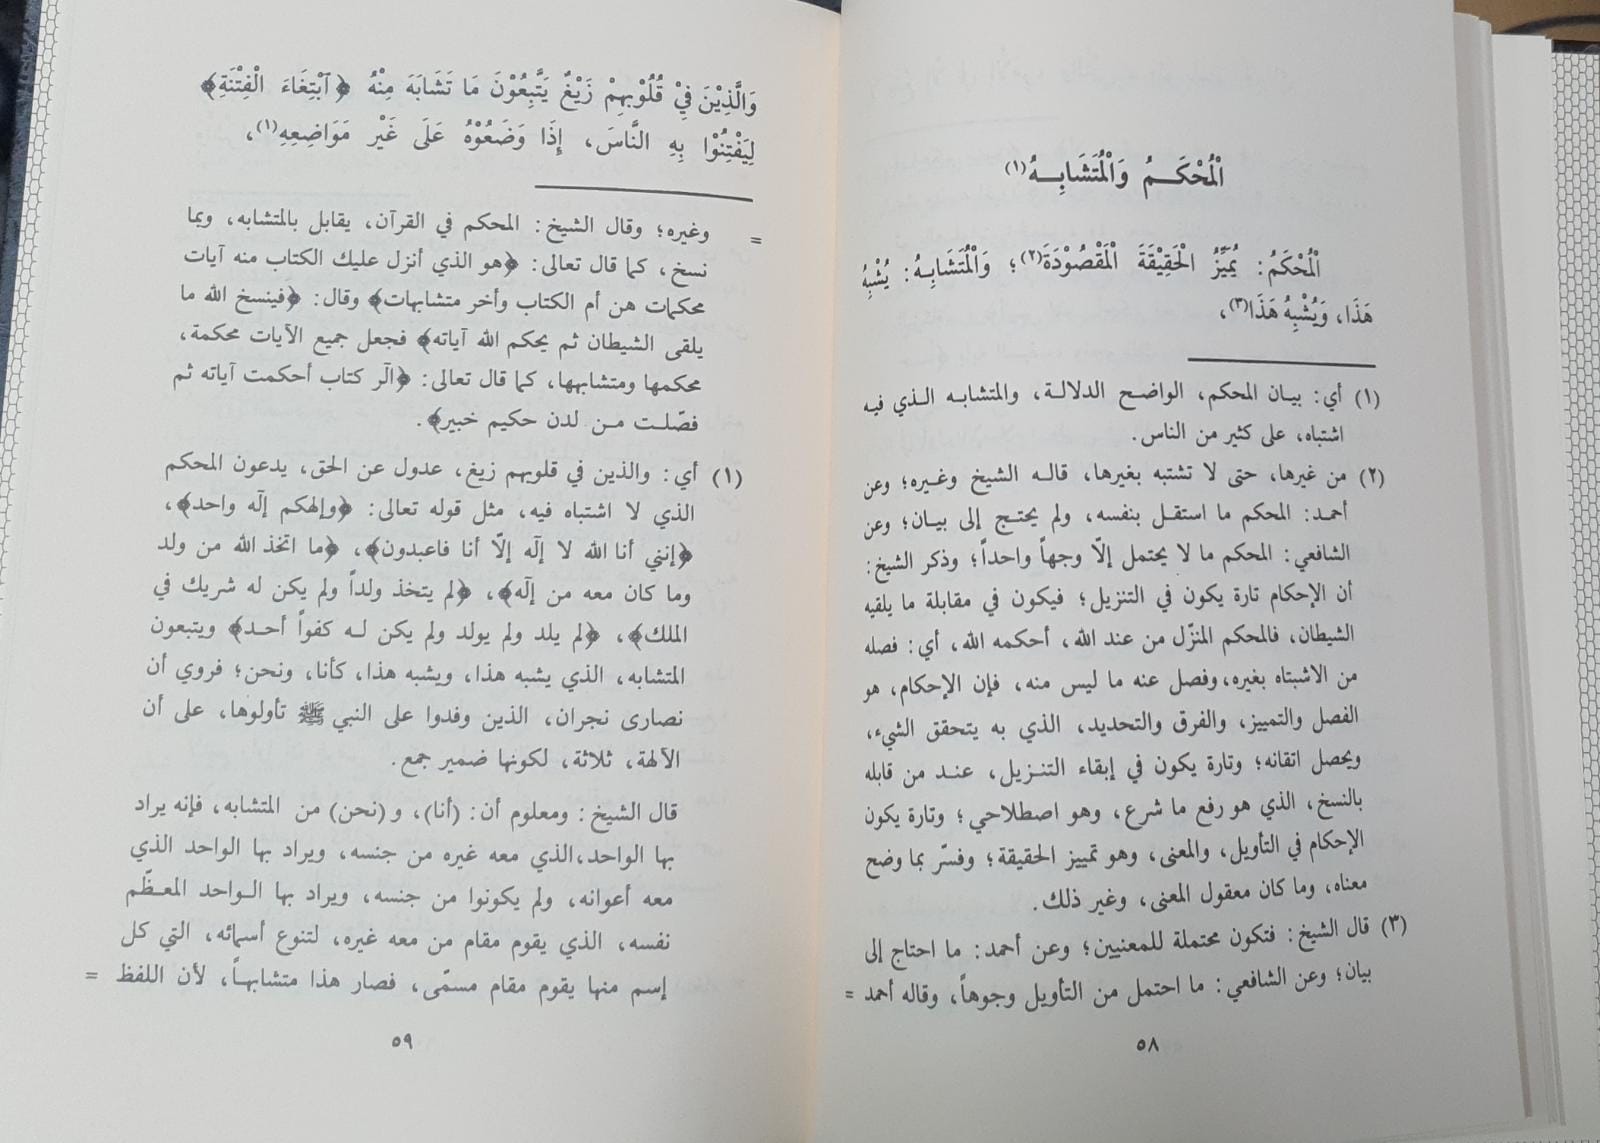 الْمُحْكَمُ وَالْمُتَشَابِهُ(١)
الْمُحْكَمُ: يُمَيِّزُ الْحَقِيْقَةَ الْمَقْصُوْدَةَ(٢)؛ وَالْمُتَشَابِهُ: يُشْبِهُ
هَذَا، وَيُشْبِهُ هَذَا(٣)،
(١) أي: بيان المحكم، الواضح الدلالة، والمتشابه الذي فيه
اشتباه، على كثير من الناس.
(٢) من غيرها، حتى لا تشتبه بغيرها، قاله الشيخ وغيره؛ وعن
أحمد: المحكم ما استقل بنفسه، ولم يحتج إلى بيان؛ وعن
الشافعي: المحكم ما لا يحتمل إلّا وجهاً واحداً؛ وذكر الشيخ:
أن الإحكام تارة يكون في التنزيل؛ فيكون في مقابلة ما يلقيه
الشيطان، فالمحكم المنزّل من عند الله، أحكمه الله، أي: فصله
من الاشبتاه بغيره، وفصل عنه ما ليس منه، فإن الإحكام، هو
الفصل والتمييز، والفرق والتحديد، الذي به يتحقق الشيء،
ويحصل اتقانه؛ وتارة يكون في إبقاء التنزيل، عند من قابله
بالنسخ، الذي هو رفع ما شرع، وهو اصطلاحي؛ وتارة يكون
الإحكام في التأويل، والمعنى، وهو تمييز الحقيقة؛ وفسّر بما وضح
معناه، وما كان معقول المعنى، وغير ذلك.
(٣) قال الشيخ: فتكون محتملة للمعنيين؛ وعن أحمد: ما احتاج إلى
بيان؛ وعن الشافعي: ما احتمل من التأويل وجوهاً، وقاله أحمد =
٥٨
وَالَّذِيْنَ فِيْ قُلُوْبِهِمْ زَيْغٌ يَتَّبِعُوْنَ مَا تَشَابَهَ مِنْهُ ﴿ٱبْتِغَاءَ الْفِتْنَةِ﴾
لِيَفْتِنُوْا بِهِ النَّاسَ، إِذَا وَضَعُوْهُ عَلَى غَيْرِ مَوَاضِعِهِ(١)،
= وغيره؛ وقال الشيخ: المحكم في القرآن، يقابل بالمتشابه، وبما
نسخ، كما قال تعالى: ﴿هو الذي أنزل عليك الكتاب منه آيات
محكمات هن أم الكتاب وأخر متشابهات﴾ وقال: ﴿فينسخ الله ما
يلقى الشيطان ثم يحكم الله آياته﴾ فجعل جميع الآيات محكمة،
محكمها ومتشابهها، كما قال تعالى: ﴿آلر كتاب أحكمت آياته ثم
فصّلت من لدن حكيم خبير﴾.
(١) أي: والذين في قلوبهم زيغ، عدول عن الحق، يدعون المحكم
الذي لا اشتباه فيه، مثل قوله تعالى: ﴿وإلهكم إلٰه واحد﴾،
﴿إنني أنا الله لا إلٰه إلّا أنا فاعبدون﴾، ﴿ما اتخذ الله من ولد
وما كان معه من إلٰه﴾، ﴿لم يتخذ ولداً ولم يكن له شريك في
الملك﴾، ﴿لم يلد ولم يولد ولم يكن له كفواً أحد﴾ ويتبعون
المتشابه، الذي يشبه هذا، ويشبه هذا، كأنا، ونحن؛ فروي أن
نصارى نجران، الذين وفدوا على النبي ﷺ تأولوها، على أن
الآلهة، ثلاثة، لكونها ضمير جمع.
قال الشيخ: ومعلوم أن: (أنا)، و (نحن) من المتشابه، فإنه يراد
بها الواحد، الذي معه غيره من جنسه، ويراد بها الواحد الذي
معه أعوانه، ولم يكونوا من جنسه، ويراد بها الواحد المعظّم
نفسه، الذي يقوم مقام من معه غيره، لتنوع أسمائه، التي كل
إسم منها يقوم مقام مسمّى، فصار هذا متشابهاً، لأن اللفظ =
٥٩